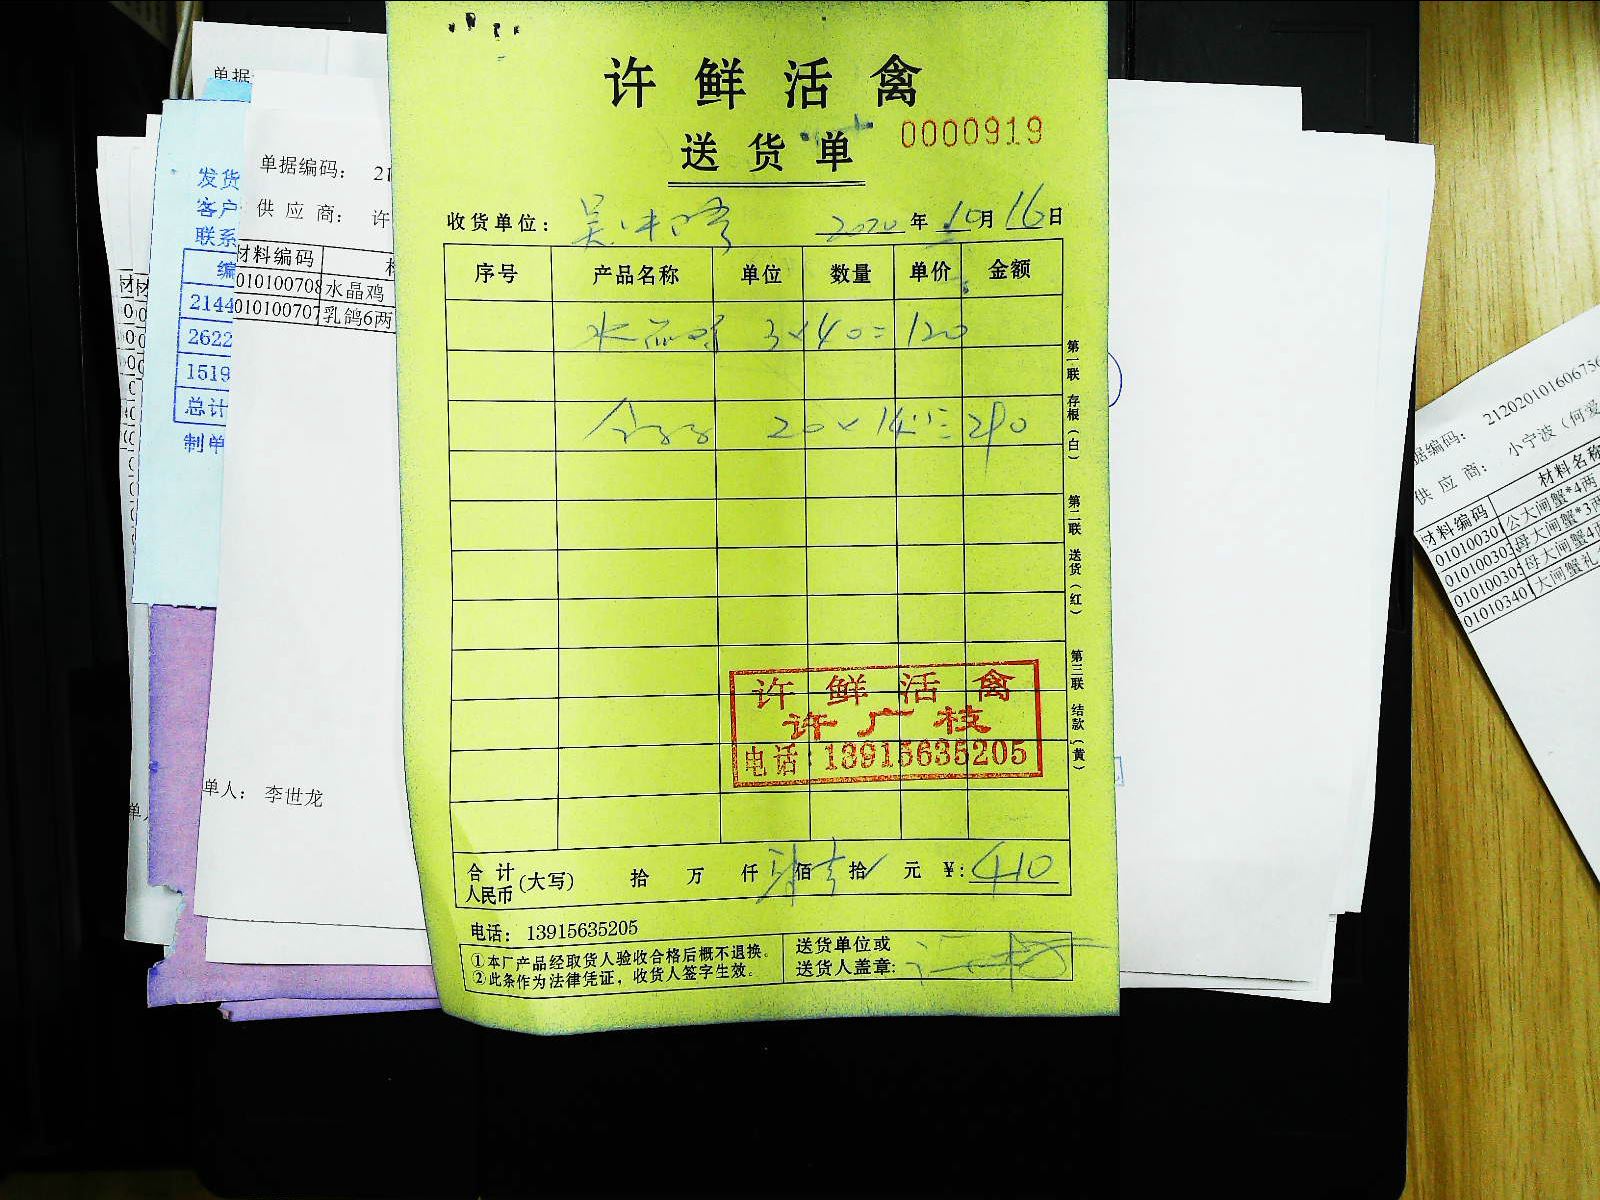 许鲜活禽
送货单 0000919
收货单位： 2020年10月16日
序号 产品名称 单位 数量 单价 金额
水晶鸡 3×40=120
鸽子 20×14.5=290
第一联 存根（白）
第二联 送货（红）
第三联 结款（黄）
许鲜活禽
许广枝
电话：13915635205
合计人民币(大写) 拾 万 仟 肆佰壹拾 元 ¥:410
电话：13915635205
①本厂产品经取货人验收合格后概不退换。
②此条作为法律凭证，收货人签字生效。
送货单位或
送货人盖章:
单据
单据编码： 21
供应商： 许
材料编码
010100708 水晶鸡
010100707 乳鸽6两
单人： 李世龙
发货
客户
联系
编
2144
2622
1519
总计
制单
据编码： 212020101606756
供应商： 小宁波（何爱
材料编码 材料名称
01010030 公大闸蟹*4两
01010030 母大闸蟹*3两
010100305 母大闸蟹4两
01010340 大闸蟹礼